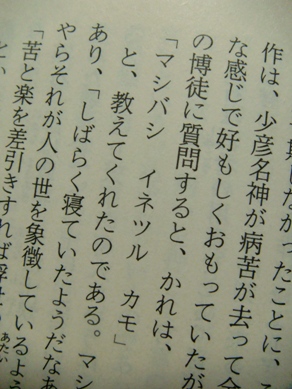 しなかったことに、
作は、少彦名神が病苦が去って
な感じで好もしくおもっていたが
の博徒に質問すると、かれは、
「マシバシ　イネツル　カモ」
と、教えてくれたのである。マシ
あり、「しばらく寝ていたようだなあ
やらそれが人の世を象徴しているよう
「苦と楽を差引きすれば浮世
あたい